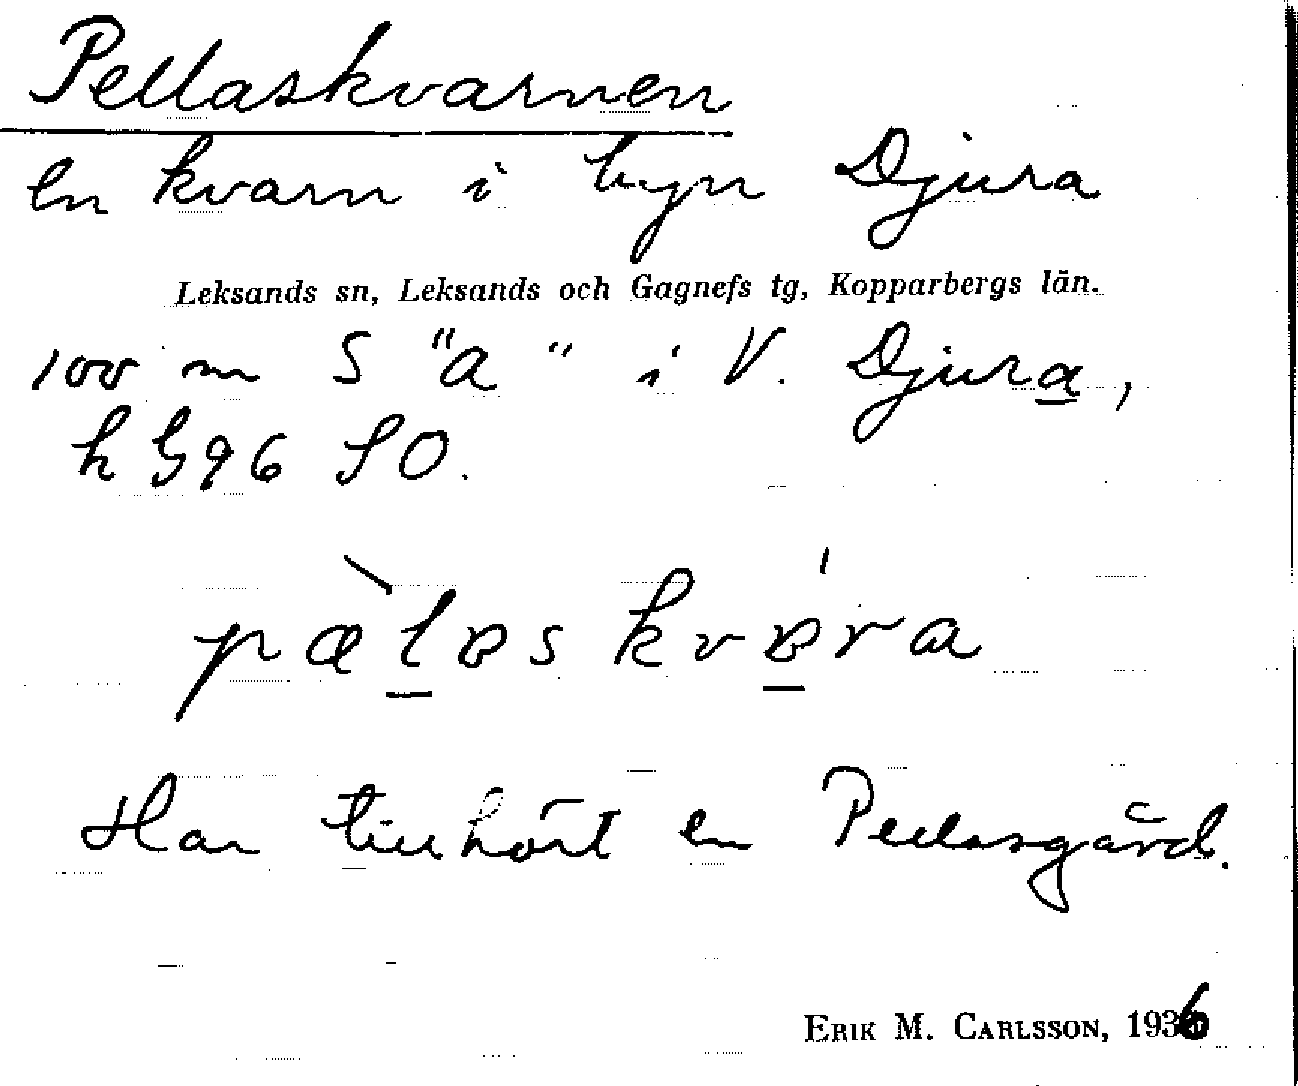 Pellaskvarnen
En kvarn i byn Djura
Leksands sn, Leksands och Gagnefs tg, Kopparbergs län.
100 m S "a" i V. Djura,
h G96 SO.
pæ̀lɐskvɐ́ra
Har tillhört en Pellasgård.
ERIK M. CARLSSON, 1936